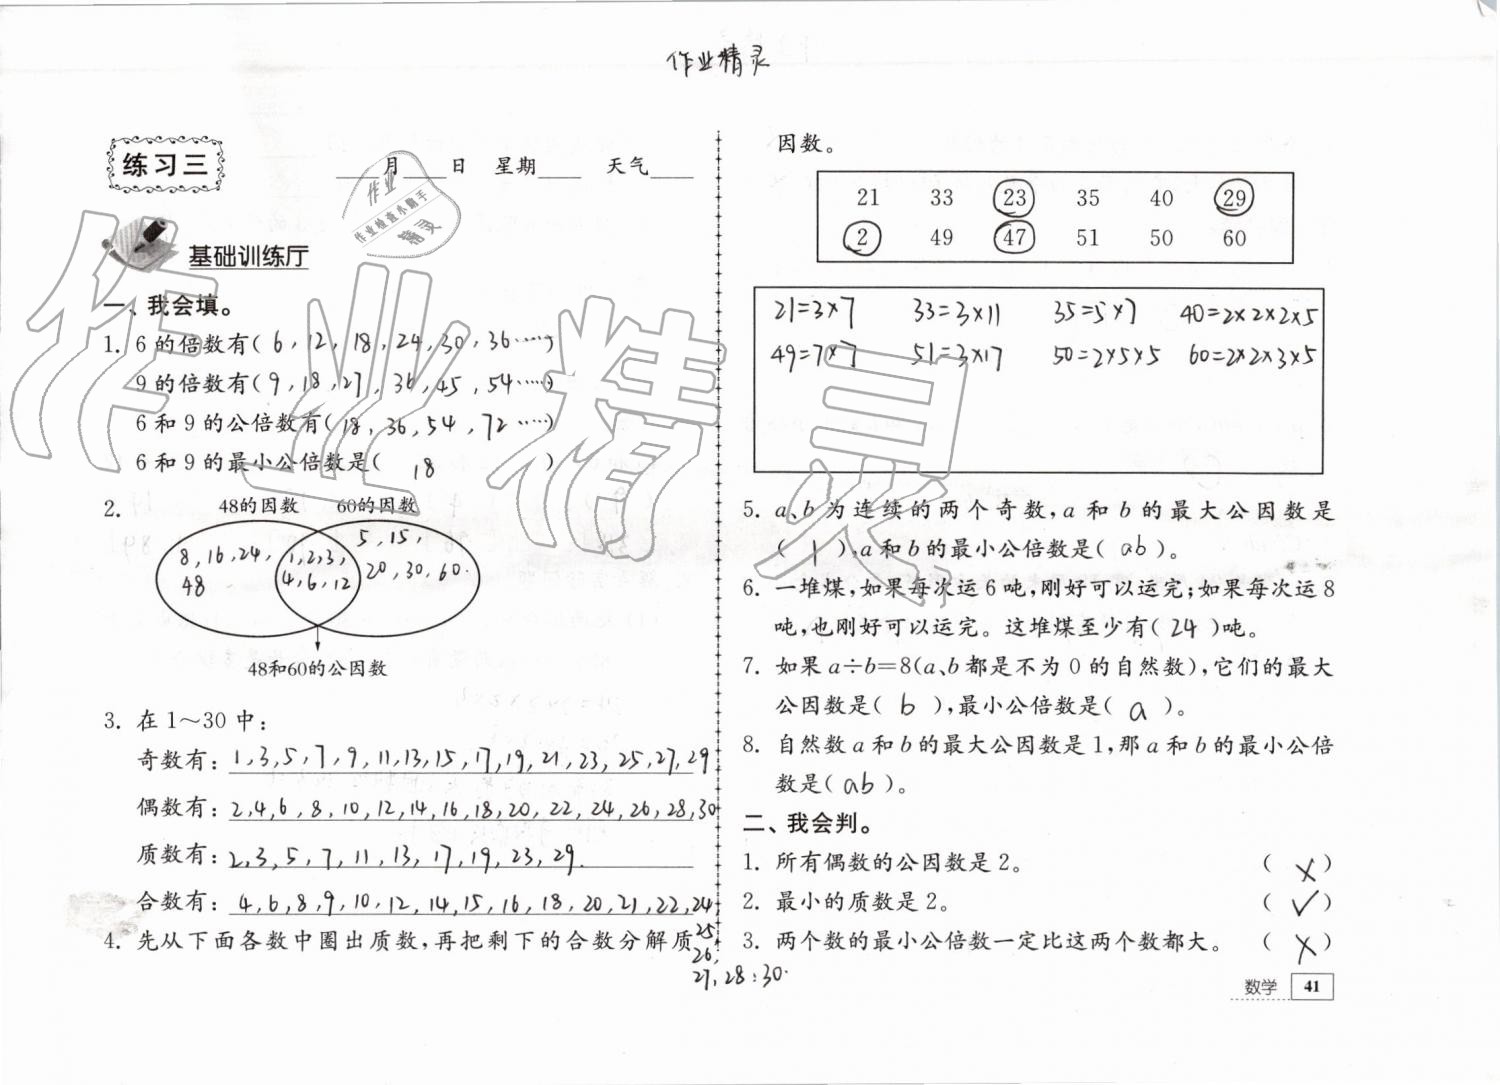 作业精灵
练习三
____月____日 星期____ 天气____
作业
作业检查小助手
精灵
基础训练厅
一、我会填。
1. 6的倍数有(6,12,18,24,30,36……)
9的倍数有(9,18,27,36,45,54……)
6和9的公倍数有(18,36,54,72……)
6和9的最小公倍数是( 18 )
2.
48的因数 60的因数
8,16,24,
48
1,2,3,
4,6,12
5,15,
20,30,60.
48和60的公因数
3. 在1~30中:
奇数有:1,3,5,7,9,11,13,15,17,19,21,23,25,27,29
偶数有:2,4,6,8,10,12,14,16,18,20,22,24,26,28,30
质数有:2,3,5,7,11,13,17,19,23,29.
合数有:4,6,8,9,10,12,14,15,16,18,20,21,22,24,
25
26,
27,28,30.
4. 先从下面各数中圈出质数,再把剩下的合数分解质
因数。
21 33 23 35 40 29
2 49 47 51 50 60
21=3×7 33=3×11 35=5×7 40=2×2×2×5
49=7×7 51=3×17 50=2×5×5 60=2×2×3×5
5. a、b为连续的两个奇数,a和b的最大公因数是
( 1 ),a和b的最小公倍数是( ab )。
6. 一堆煤,如果每次运6吨,刚好可以运完;如果每次运8
吨,也刚好可以运完。这堆煤至少有( 24 )吨。
7. 如果a÷b=8(a、b都是不为0的自然数),它们的最大
公因数是( b ),最小公倍数是( a )。
8. 自然数a和b的最大公因数是1,那a和b的最小公倍
数是( ab )。
二、我会判。
1. 所有偶数的公因数是2。 ( × )
2. 最小的质数是2。 ( ✓ )
3. 两个数的最小公倍数一定比这两个数都大。 ( × )
数学 41
作业精灵